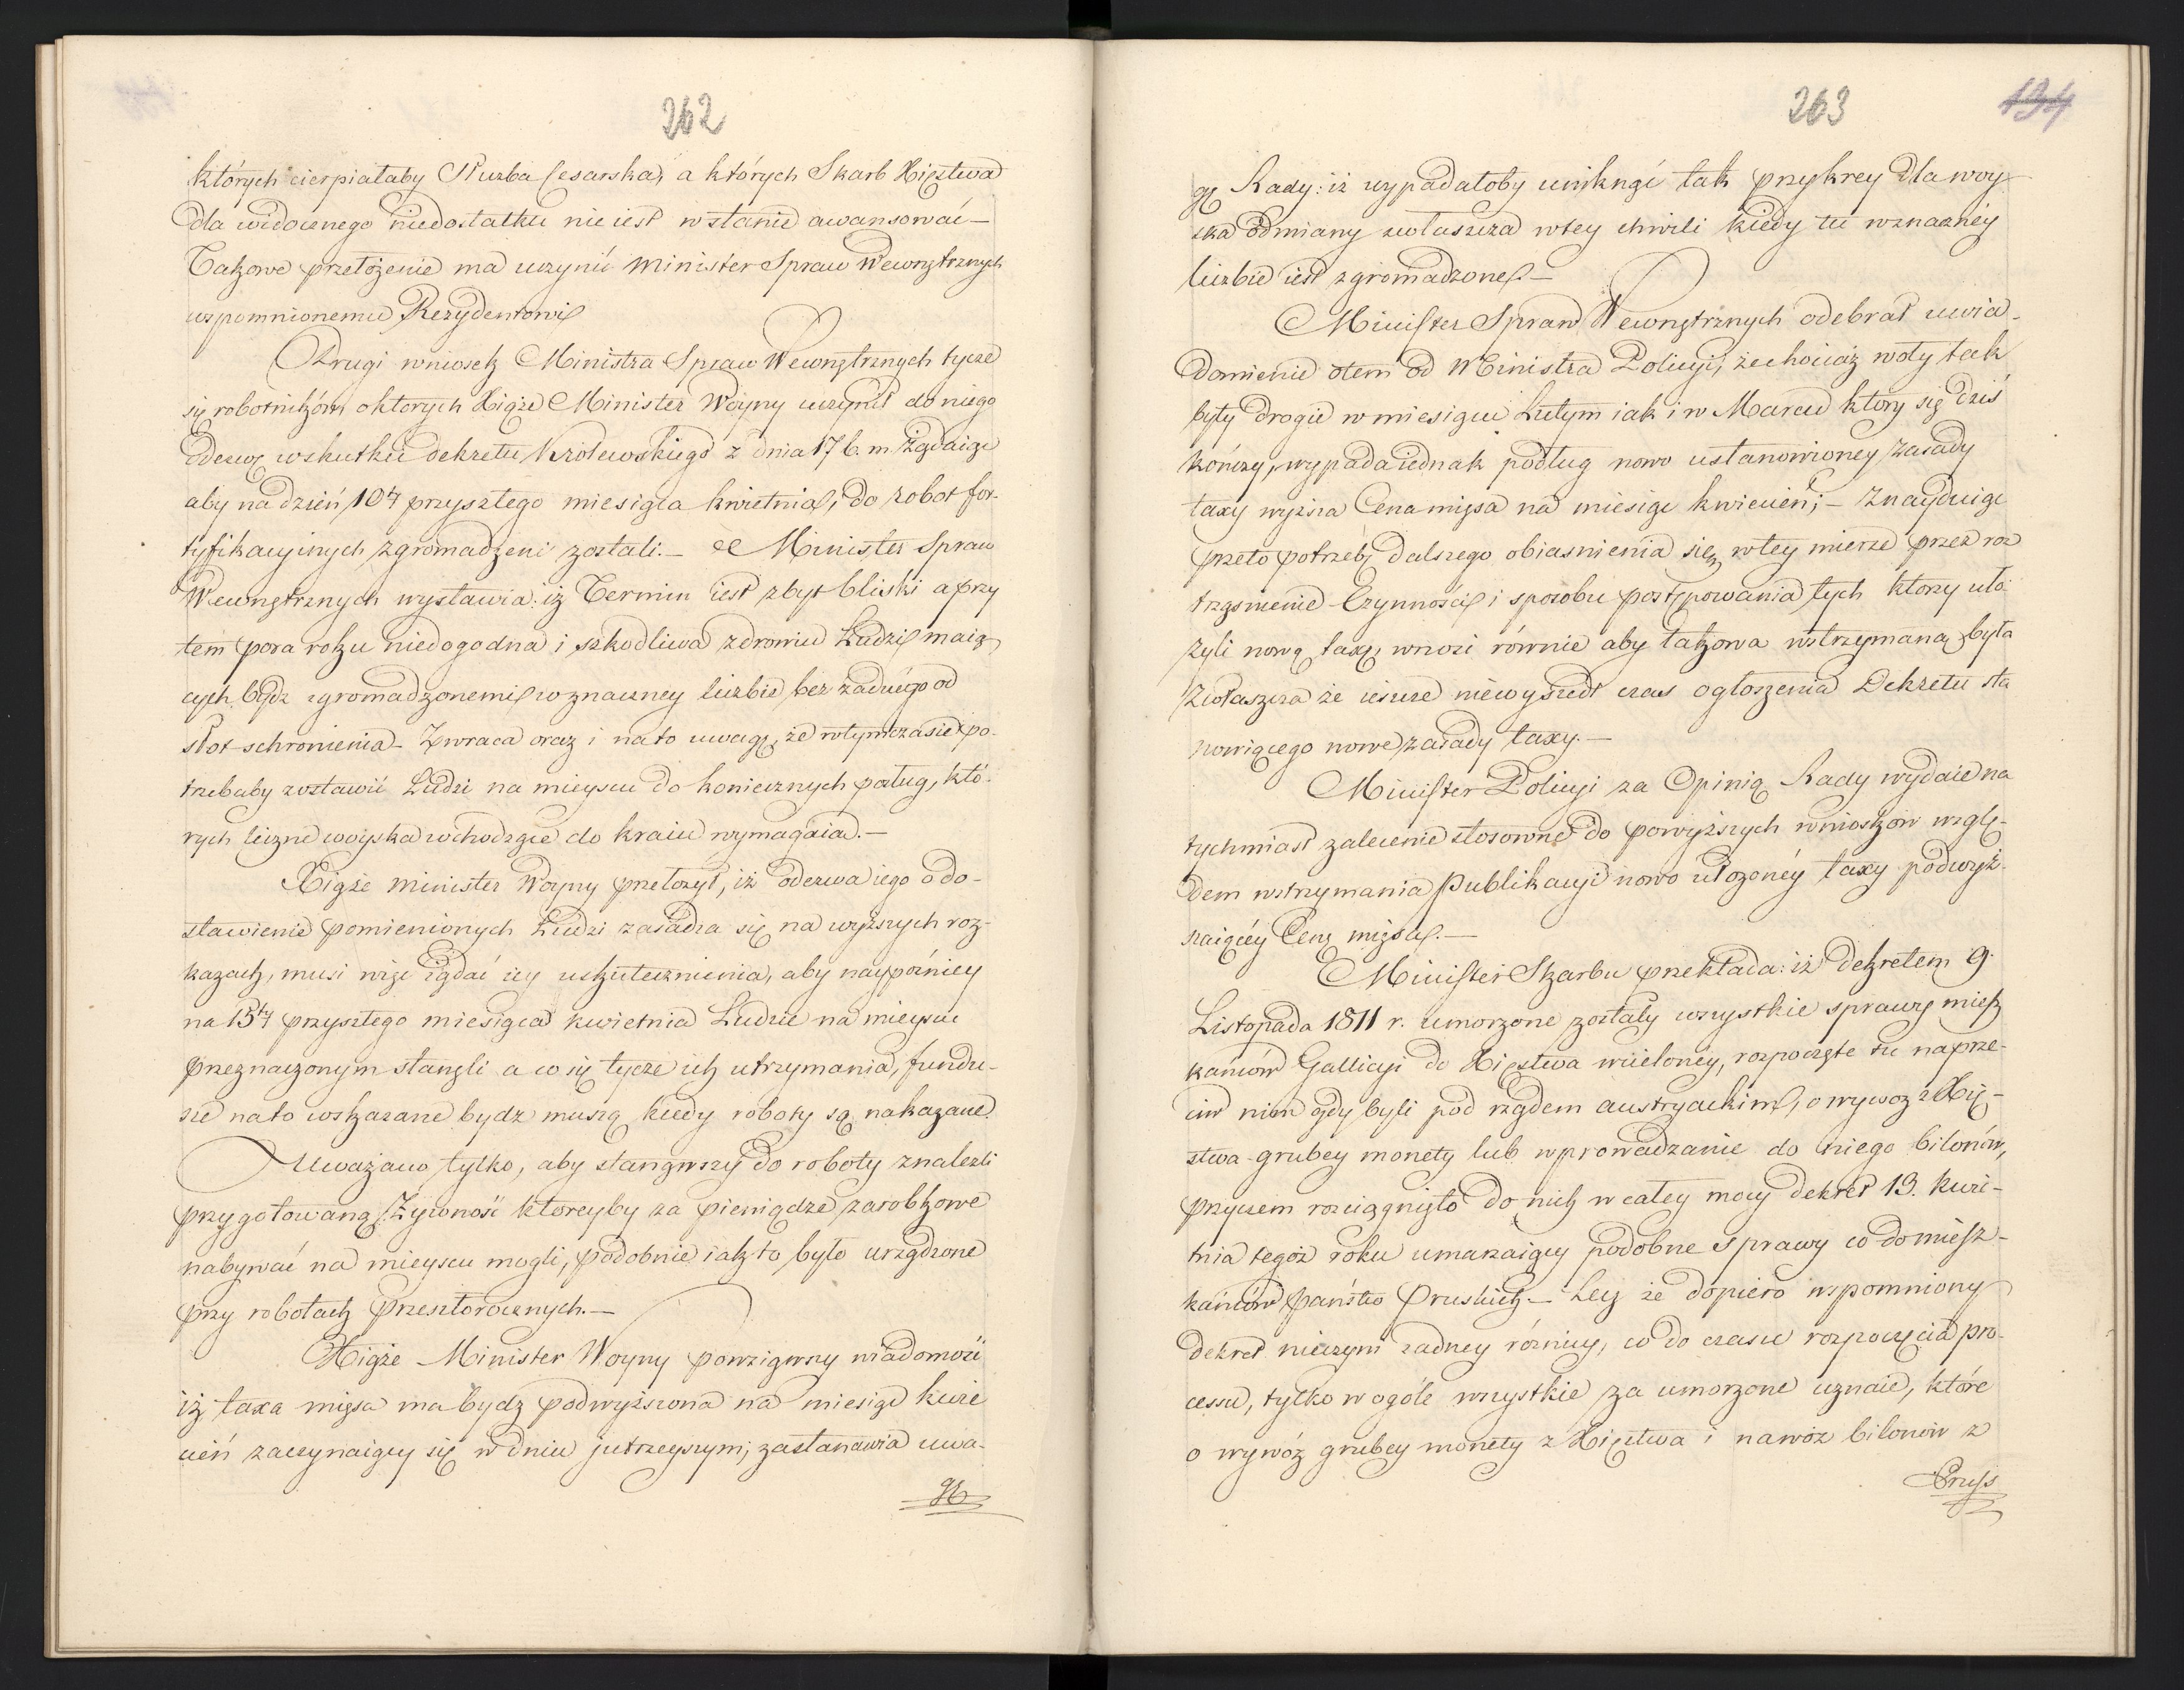 262
których cierpiałaby Służba Cesarska, a których Skarb Xięztwa
dla widocznego niedostatku nie iest w stanie awansować –
Takowe przełożenie ma uczynić Minister Spraw Wewnętrznych
wspomnionemu Rezydentowi
Drugi wniosek Ministra Spraw Wewnętrznych tycze
się robotników o ktorych Xiąże Minister Woyny uczynił do niego
odezwę w skutku dekretu Królewskiego z dnia 17 b. m. Żądaiąc
aby na dzień 10ty przyszłego miesiąca kwietnia, do robot for-
tyfikacyinych zgromadzeni zostali. – Minister Spraw
Wewnętrznych wystawia: iż Termin iest zbyt bliski a przy
tem pora roku niedogodna i szkodliwa zdrowiu Ludzi maią-
cych bydz zgromadzonemi w znaczney liczbie bez żadnego od
słot schronienia – Zwraca oraz i na to uwagę, że w tymczasie po-
trzebaby zostawić Ludzi na mieyscu do koniecznych posług, któ-
rych liczne woyska wchodzące do kraiu wymagaią. –
Xiąże Minister Woyny przełożył, iż odezwa iego o do-
stawienie pomienionych Ludzi zasadza się na wyższych roz-
kazach, musi więc żądać iey uskutecznienia, aby naypóźniey
na 15ty przyszłego miesiąca kwietnia Ludzie na mieyscu
przeznaczonym stanęli a co się tycze ich utrzymania, fundu-
sze na to wskazane bydz muszą kiedy roboty są nakazane.
Uważano tylko, aby stanąwszy do roboty znalezli
przygotowaną Żywność ktoreyby za pieniądze zarobkowe
nabywać na mieyscu mogli, podobnie iak to było urządzone
przy robotach przeszłorocznych. –
Xiąże Minister Woyny powziąwszy wiadomość
iż taxa mięsa ma bydz podwyższona na miesiąc kwie
cień zaczynaiący się w dniu jutrzeyszym; zastanawia uwa-
gę
263
134
gę Rady: iż wypadałoby uniknąć tak przykrey dla woy-
ska odmiany zwłaszcza w tey chwili kiedy tu w znaczney
liczbie iest zgromadzone. –
Minister Spraw Wewnętrznych odebrał uwia-
domienie o tem od Ministra Policyi, że chociaż woły tak
były drogie w miesiącu Lutym iak i w Marcu ktory się dziś
kończy, wypada iednak podług nowo ustanowioney zasady
taxy wyższa Cena mięsa na miesiąc kwiecień; – Znayduiąc
przeto potrzebę dalszego obiasnienia się w tey mierze przez roz
trząsnienie Czynności i sposobu postępowania tych ktorzy uło-
żyli nową taxę, wnosi równie aby takowa wstrzymaną była
zwłaszcza że ieszcze niewyszedł czas ogłoszenia Dekretu sta
nowiącego nowe zasady taxy. –
Minister Policyi za Opinią Rady wydaie na
tychmiast zalecenie stosowne do powyższych wniosków wzglę-
dem wstrzymania Publikacyi nowo ułożonéy taxy podwyż-
szaiącéy Cenę mięsa. –
Minister Skarbu przekłada: iż dekretem 9.
Listopada 1811 r. umorzone zostały wszystkie sprawy miesz
kańców Gallicyi do Xięstwa wcieloney, rozpoczęte tu naprze-
ciw nim gdy byli pod rządem austryackim, o wywoz z Xię-
stwa grubey monety lub wprowadzanie do niego bilonów,
przyczem rozciągnięto do nich w całey mocy dekret 13. kwie-
tnia tegoż roku umarzaiący podobne sprawy co do miesz-
kańców państw Pruskich. – Lecz że dopiero wspomniony
dekret nieczyni żadney różnicy, co do czasu rozpoczęcia pro-
cessu, tylko w ogóle wszystkie za umorzone uznaie, które
o wywóz grubey monety z Xięztwa i nawóz bilonów z
Pruss